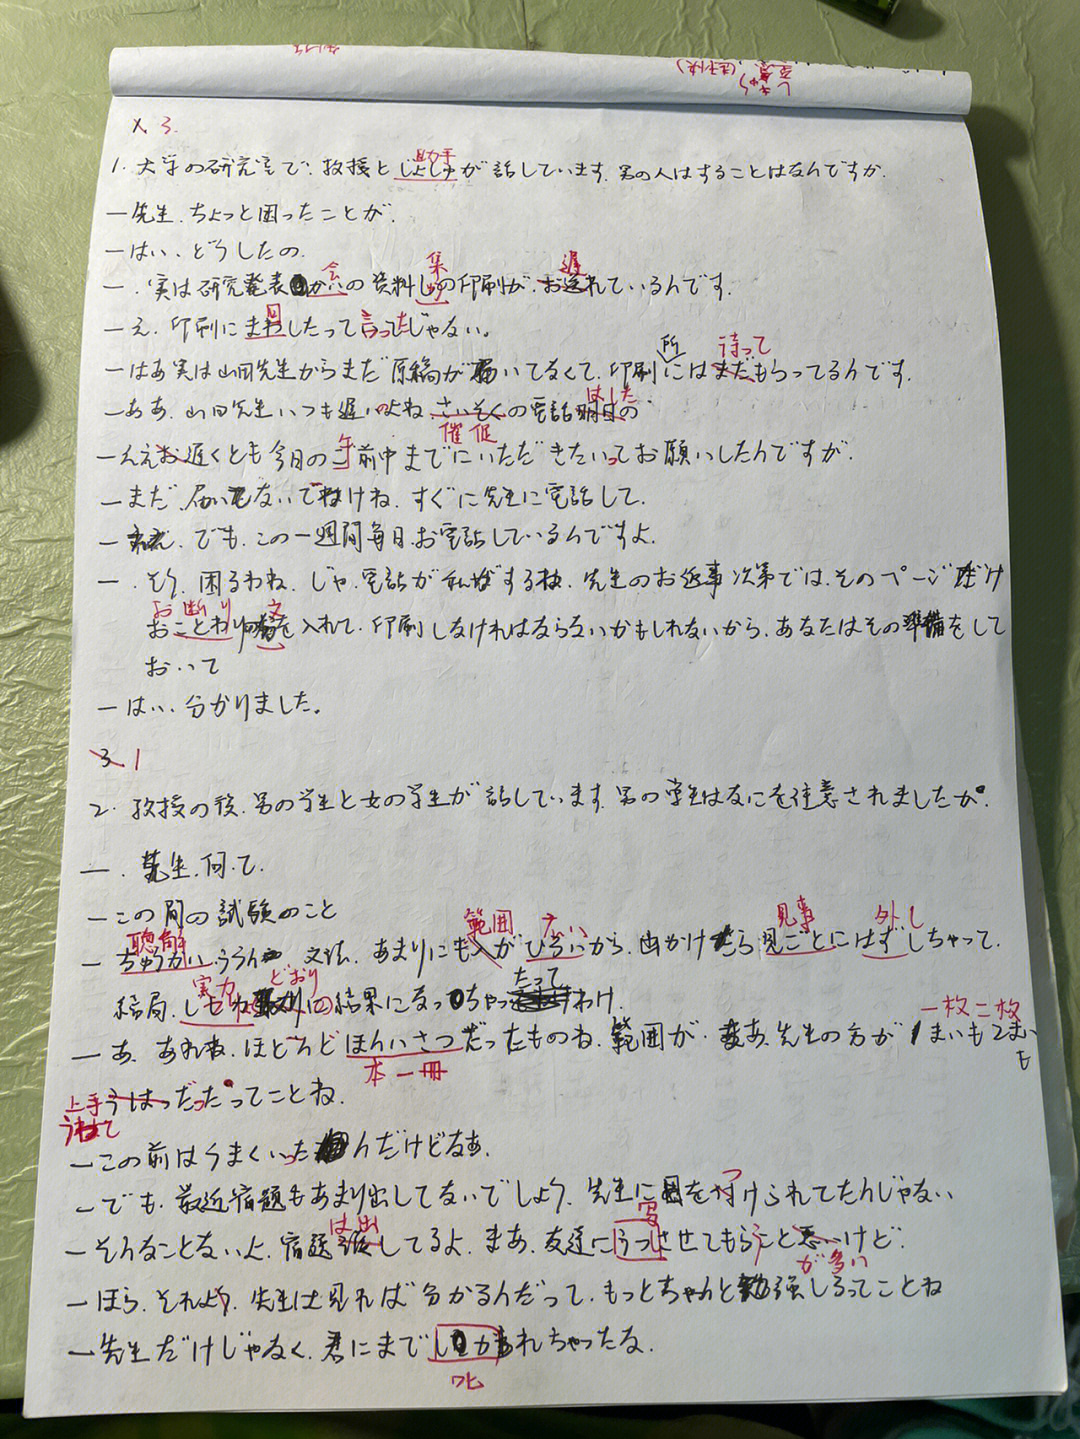 3.
助手
1. 大学の研究室で、教授とじょしゅが話しています。男の人はすることはなんですか。
一先生、ちょっと困ったことが。
一はい、どうしたの。
会 集 遅
一、実は研究発表かいの資料しゅうの印刷が、お送れているんです。
一え、印刷にまわしたって言ったじゃない。
所 待って
一はあ実は山田先生からまだ原稿が届いてなくて、印刷にはまだもらってるんです。
はした
一ああ、山田先生いつも遅いのよね、さいそくの電話明日の
催促
午
一ええお遅くとも今日のご前中までにいただきたいってお願いしたんですが。
一まだ、届いてないでわけね、すぐに先生に電話して。
一ええ、でも、この一週間毎日、お電話しているんですよ。
一、そう、困るわね、じゃ、電話が私がするね、先生のお返事次第では、そのページだけ
お断り 文
おことわりを入れて、印刷しなければならないかもしれないから、あなたはその準備をして
おいて
一はい、分かりました。
3. 1
2. 教授の後、男の学生と女の学生が話しています。男の学生はなにを注意されましたか。
一、先生、何て。
一この間の試験のこと
聴解 範囲 広い 見事 外し
一ちゅうかい、ううん、文法、あまりにもがひろいから、出かけたら見ごとにはずしちゃって、
実力 どおり たって
結局、の結果になっちゃっわけ。
一枚二枚
一あ、あれね、ほとんどほんいさつだったものね、範囲が、まあ、先生の方が1まいも2まい
も
本一冊
上手うはってだったってことね。
うわて
一この前はうまくいったんだけどなあ。
つ
一でも、最近宿題もあまり出してないでしょう、先生に目を付けられてたんじゃない
は出 写
一そんなことないよ、宿題してるよ、まあ、友達にうつさせてもらうこと悪いけど。
が多い
一ほら、それよう、先生は見れば分かるんだって、もっとちゃんと勉強しろってことね
一先生だけじゃなく、君にまでしかられちゃったな。
叱